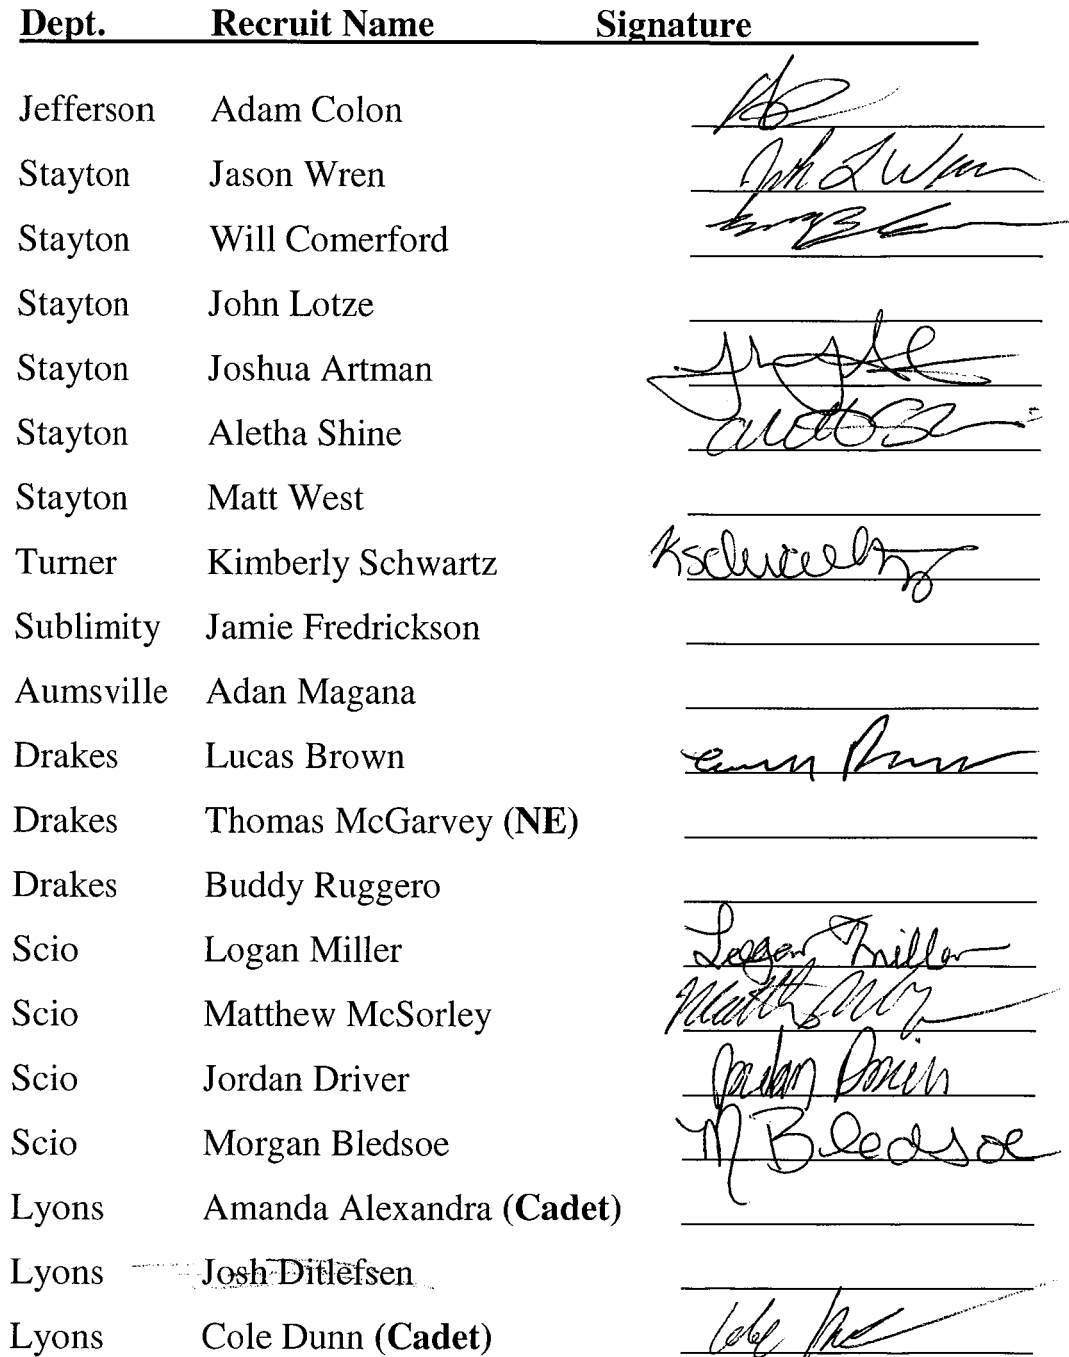 Dept. Recruit Name Signature
Jefferson Adam Colon
Stayton Jason Wren
Stayton Will Comerford
Stayton John Lotze
Stayton Joshua Artman
Stayton Aletha Shine
Stayton Matt West
Turner Kimberly Schwartz KSchwartz
Sublimity Jamie Fredrickson
Aumsville Adan Magana
Drakes Lucas Brown
Drakes Thomas McGarvey (NE)
Drakes Buddy Ruggero
Scio Logan Miller Logan Miller
Scio Matthew McSorley
Scio Jordan Driver Jordan
Scio Morgan Bledsoe M Bledsoe
Lyons Amanda Alexandra (Cadet)
Lyons Josh Ditlefsen
Lyons Cole Dunn (Cadet) Cole